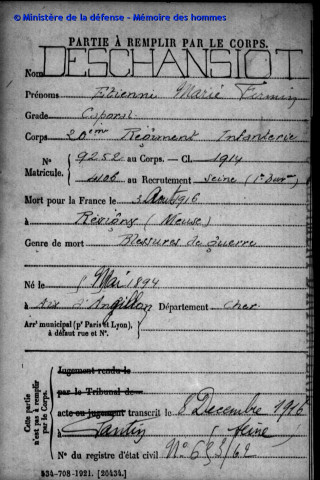 © Ministère de la défense - Mémoire des hommes
PARTIE À REMPLIR PAR LE CORPS.
Nom DESCHANSIOT
Prénoms Etienne Marie Firmin
Grade Caporal
Corps 20eme Régiment Infanterie
N° Matricule. { 9252 au Corps. — Cl. 1914
4106 au Recrutement Seine (1er Bur.)
Mort pour la France le 3 Aout 1916
à (Meuse)
Genre de mort Blessures de guerre
Né le 1 Mai 1894
à Aix d'Angillon Département Cher
Arrt municipal (pr Paris et Lyon), à défaut rue et N°.
Cette partie n'est pas à remplir par le Corps.
Jugement rendu le
par le Tribunal de
acte ou jugement transcrit le 8 Decembre 1916
à Pantin (Seine)
N° du registre d'état civil N° 692/62
534-708-1921. [26434.]